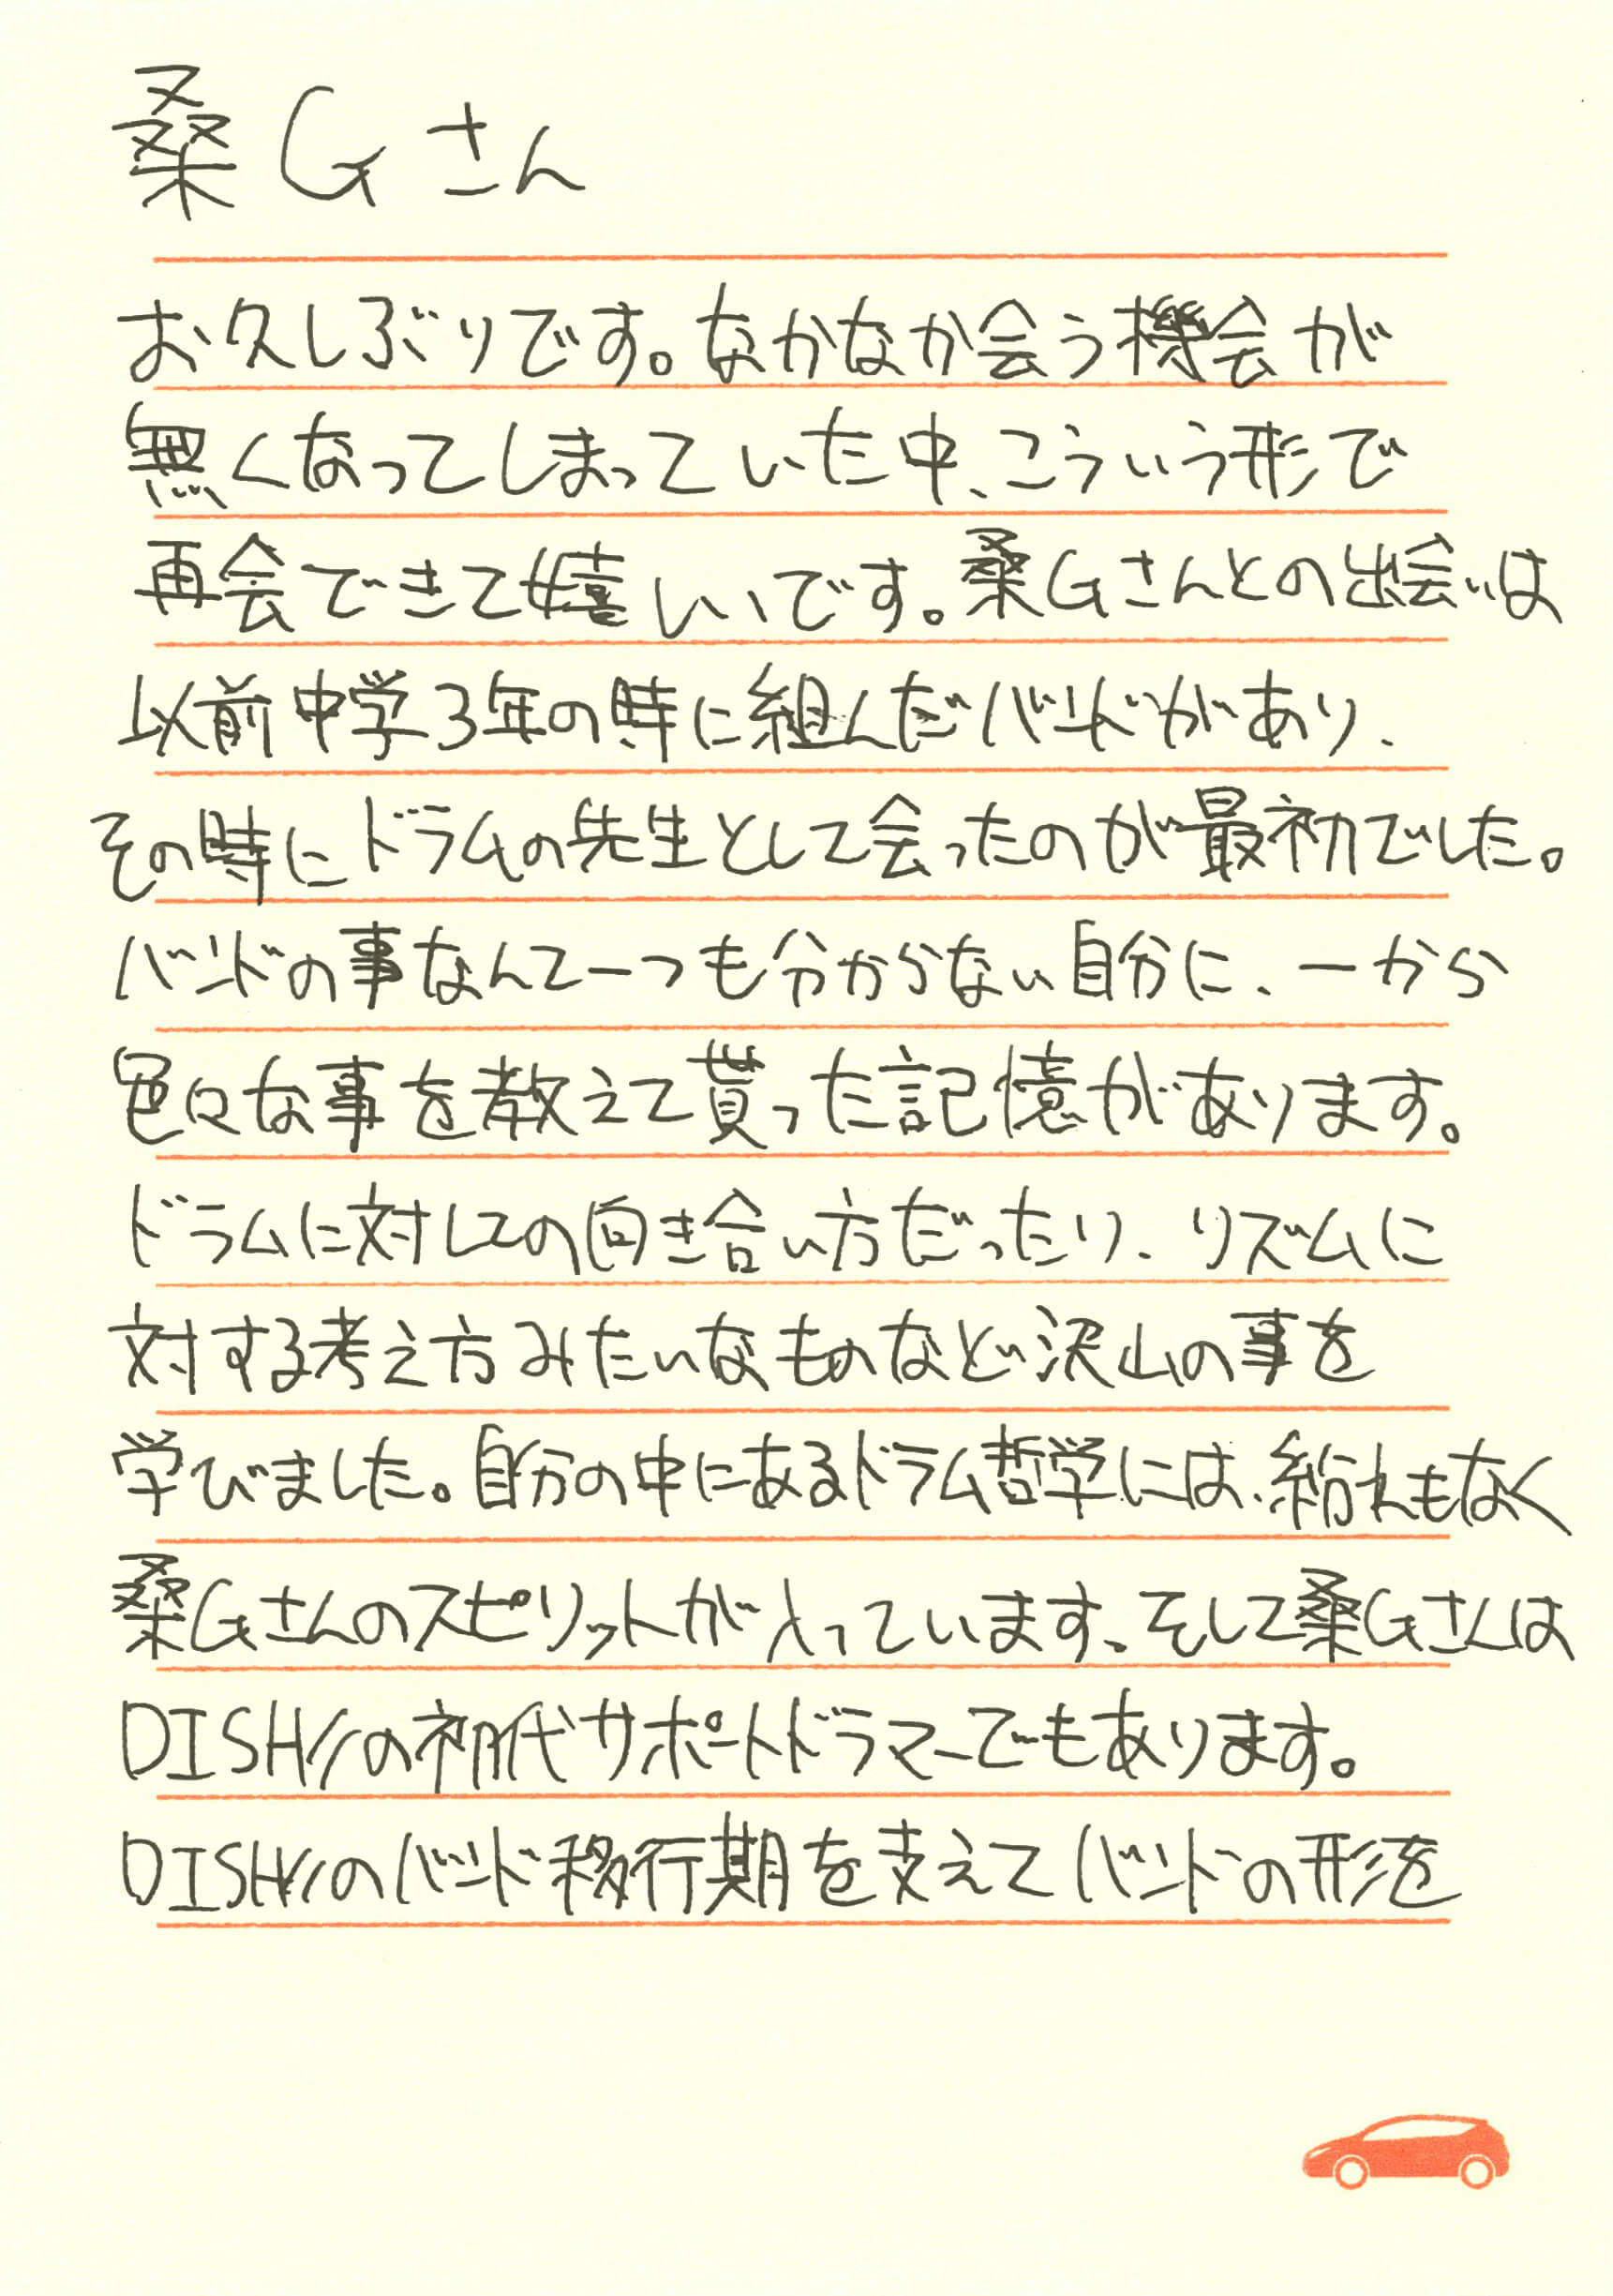 桑Gさん
お久しぶりです。なかなか会う機会が
無くなってしまっていた中、こういう形で
再会できて嬉しいです。桑Gさんとの出会いは
以前中学3年の時に組んだバンドがあり、
その時にドラムの先生として会ったのが最初でした。
バンドの事なんて一つも分からない自分に、一から
色々な事を教えて貰った記憶があります。
ドラムに対しての向き合い方だったり、リズムに
対する考え方みたいなものなど沢山の事を
学びました。自分の中にあるドラム哲学には、紛れもなく
桑Gさんのスピリットが入っています。そして桑Gさんは
DISH//の初代サポートドラマーでもあります。
DISH//のバンド移行期を支えてバンドの形を